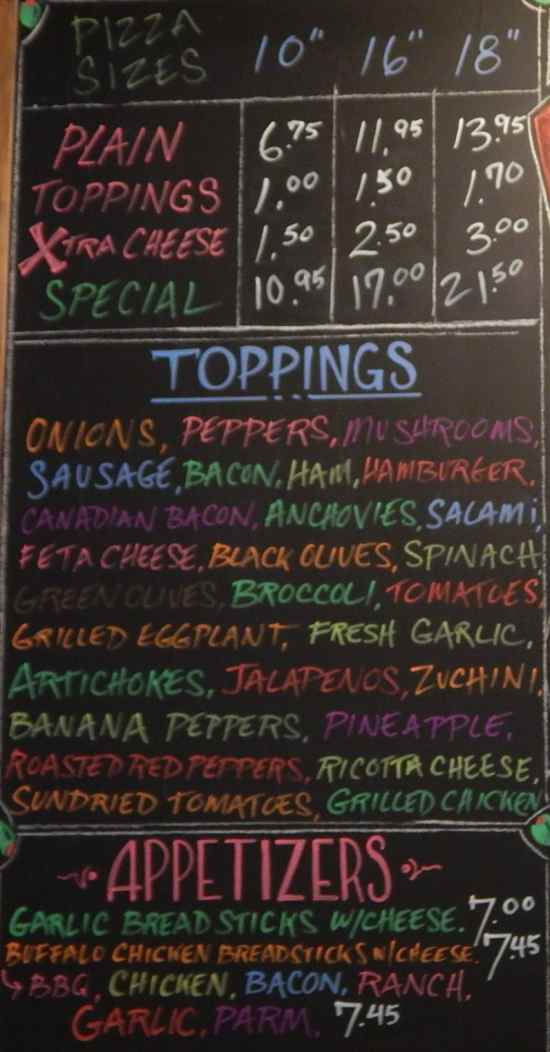 PIZZA SIZES 10" 16" 18"
PLAIN 6.75 11.95 13.95
TOPPINGS 1.00 1.50 1.70
XTRA CHEESE 1.50 2.50 3.00
SPECIAL 10.95 17.00 21.50
TOPPINGS
ONIONS, PEPPERS, MUSHROOMS,
SAUSAGE, BACON, HAM, HAMBURGER,
CANADIAN BACON, ANCHOVIES, SALAMI,
FETA CHEESE, BLACK OLIVES, SPINACH
GREEN OLIVES, BROCCOLI, TOMATOES,
GRILLED EGGPLANT, FRESH GARLIC,
ARTICHOKES, JALAPENOS, ZUCHINI,
BANANA PEPPERS, PINEAPPLE,
ROASTED RED PEPPERS, RICOTTA CHEESE,
SUNDRIED TOMATOES, GRILLED CHICKEN
APPETIZERS
GARLIC BREAD STICKS W/CHEESE. 7.00
BUFFALO CHICKEN BREADSTICKS W/CHEESE. 7.45
↳ BBQ, CHICKEN, BACON, RANCH,
GARLIC, PARM, 7.45